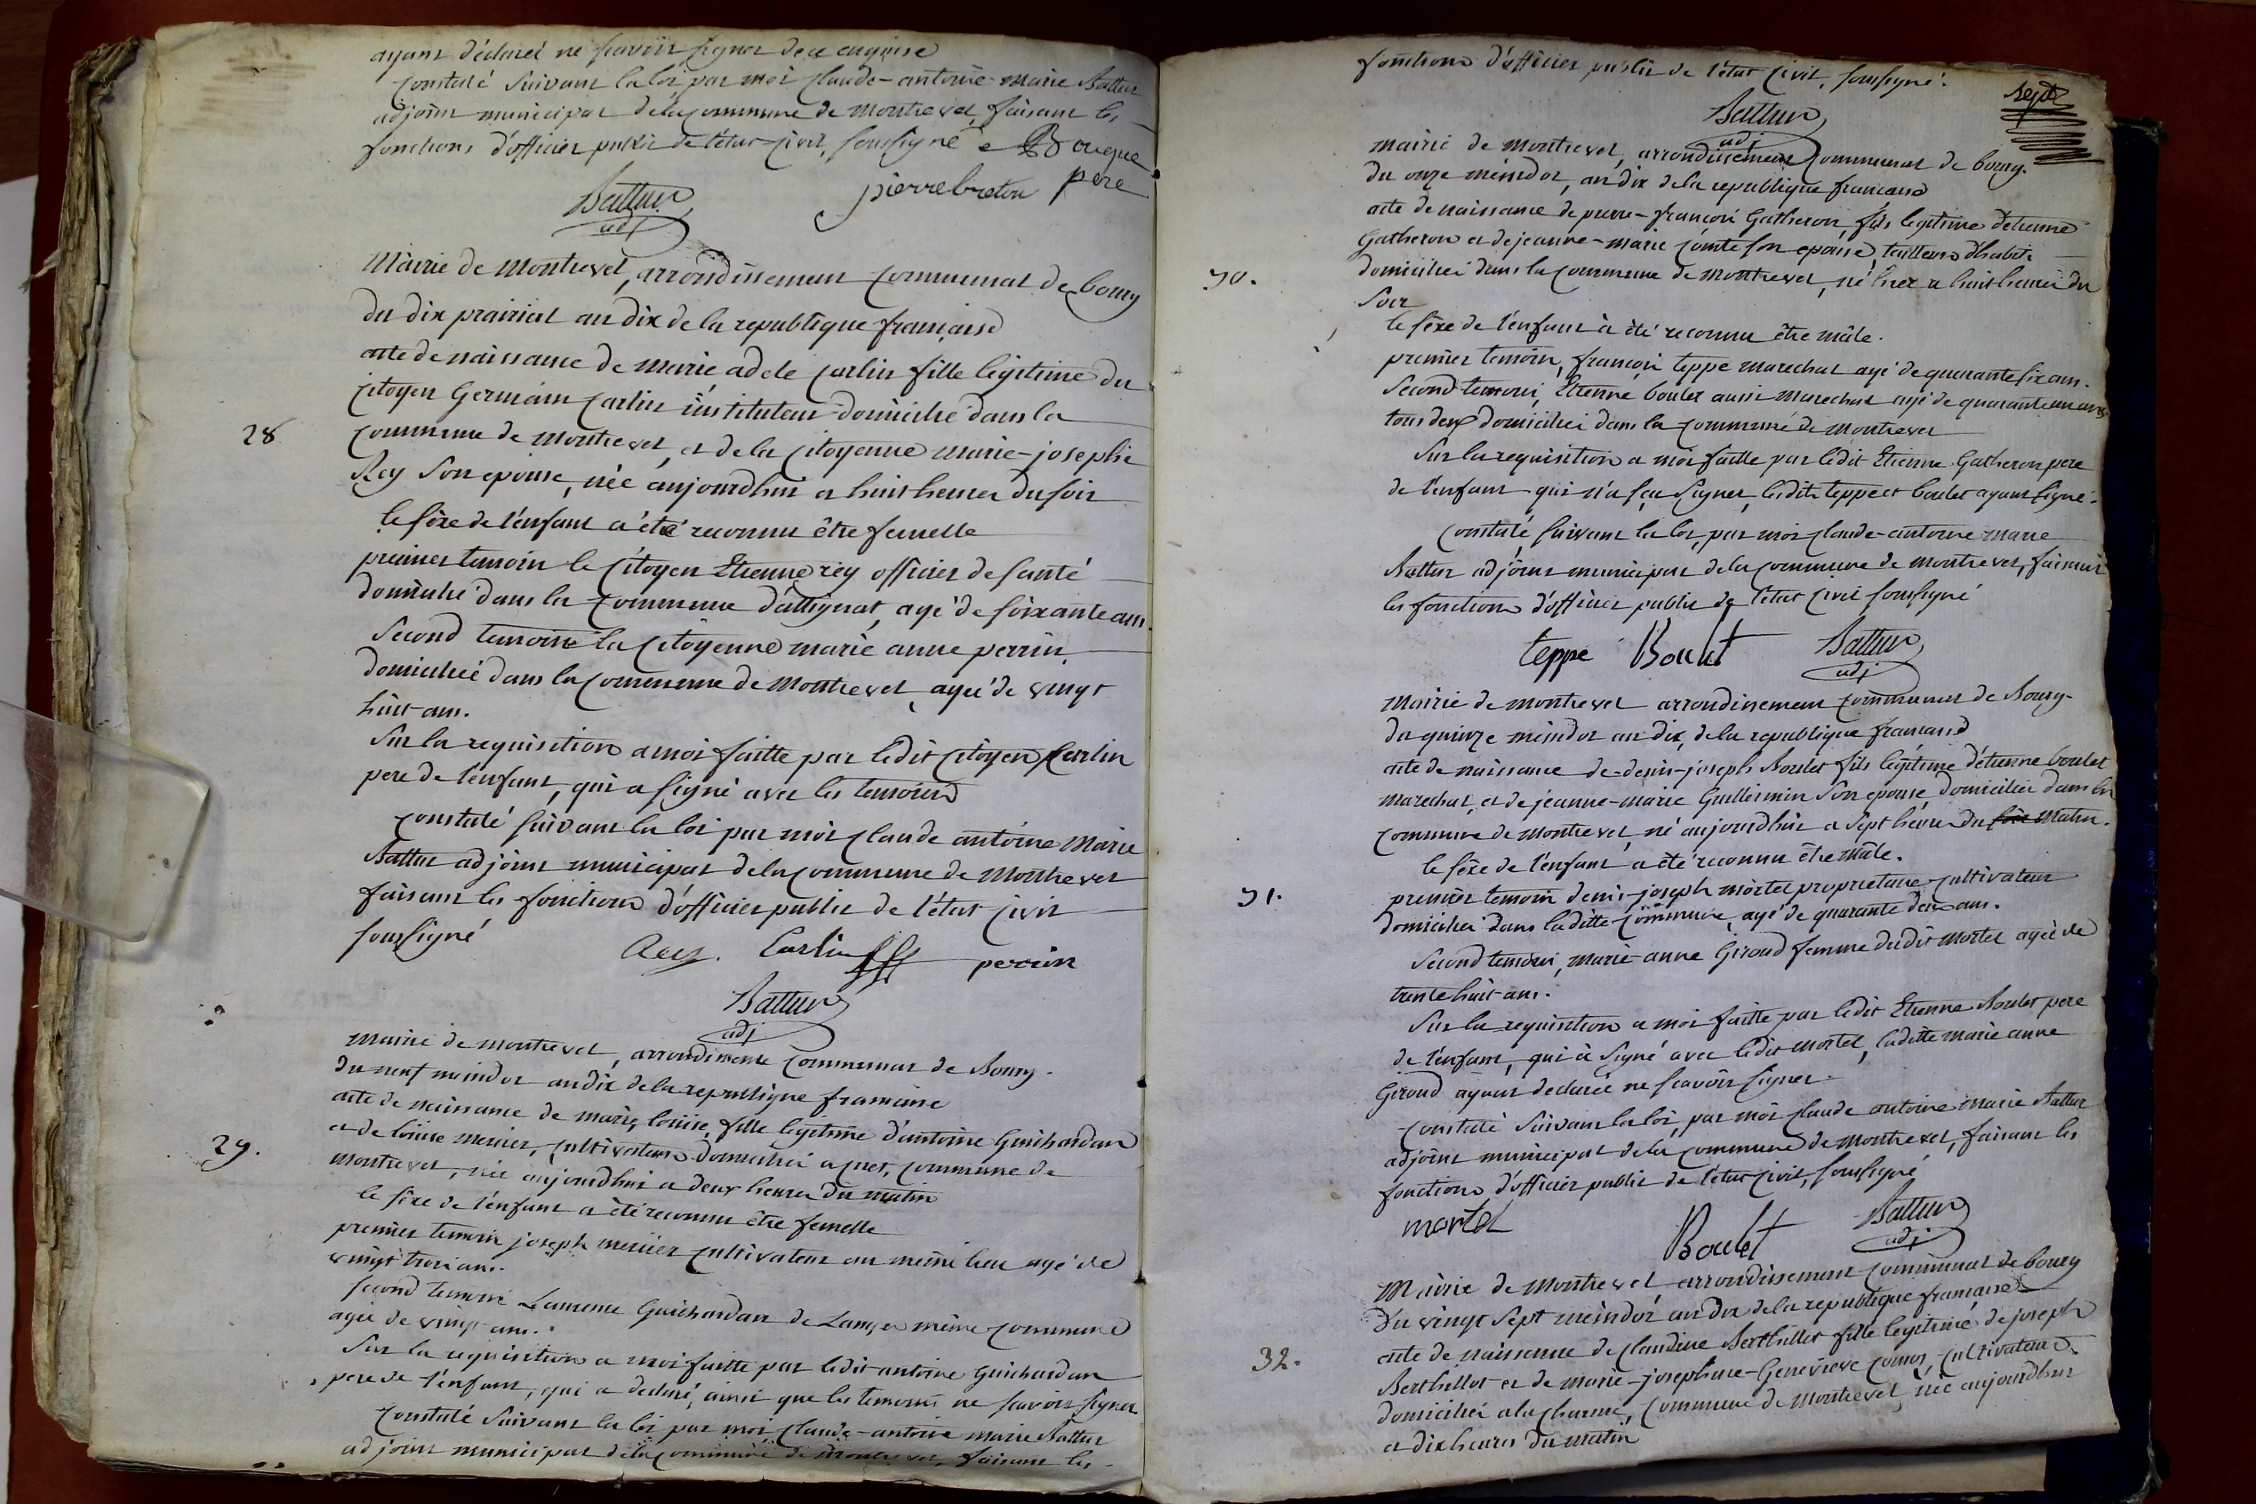 ayant déclaré ne scavoir signer de ce enquise
constaté suivant la loi par moi claude-antoine-marie Battur
adjoint municipal de la commune de montrevel, faisant les
fonctions d'officier public de l'état-civil, soussigné
pierre breton père
Battur
adj
Mairie de Montrevel, arrondissement communal de bourg
du dix prairial an dix de la republique française
acte de naissance de marie adele carlin fille legitime du
citoyen Germain carlin instituteur domicilié dans la
28
commune de montrevel, et de la citoyenne marie-josephe
Rey son epouse, née aujourdhui a huit heures du soir
le sèxe de l'enfant a été reconnu être femelle
premier temoin le citoyen Etienne rey officier de santé
domicilié dans la commune d'attignat, agé de soixante ans
second temoin la citoyenne marie anne perrin
domiciliée dans la commune de Montrevel, agée de vingt
huit ans.
sur la requisition a moi faitte par ledit citoyen Carlin
pere de l'enfant, qui a signé avec les temoins
constaté suivant la loi par moi claude antoine Marie
Battur adjoint municipal de la commune de Montrevel
faisant les fonctions d'officier public de l'état civil
soussigné
Rey. Carlin perrin
Battur
adj
mairie de montrevel, arrondissement communal de Bourg.
du neuf messidor an dix de la republique francaise
acte de naissance de marie louise, fille legitime d'antoine Guichardan
et de louise mercier, cultivateurs domiciliés a cuet, commune de
29.
montrevel, née aujourdhui a deux heures du matin
le sèxe de l'enfant a été reconnu être femelle
premier temoin joseph mercier cultivateur au même lieu agé de
vingt trois ans.
second temoin Laurence Guichardan de même commune
agée de vingt ans.
sur la requisition a moi faitte par ledit antoine Guichardan
pere de l'enfant, qui a declaré, ainsi que les temoins ne scavoir signer
constaté suivant la loi par moi, claude-antoine marie Battur
adjoint municipal de la commune de montrevel, faisant les
fonctions d'officier public de l'état civil, soussigné.
Sept
Battur
adj
mairie de montrevel, arrondissement communal de bourg.
du onze méssidor, an dix de la republique francaise
acte de naissance de pierre-françois Gatheron fils legitime d'etienne
Gatheron et de jeanne-marie comte son epouse, tailleurs d'habits
30.
domiciliés dans la commune de montrevel, né hier a huit heures du
soir
le sèxe de l'enfant à été reconnu être mâle.
premier temoin, françois teppe marechal agé de quarante six ans.
second temoin, Etienne boulet aussi marechal agé de quarante un ans
tous deux domiciliés dans la commune de montrevel
sur la requisition a moi faitte par ledit Etienne Gatheron pere
de l'enfant qui n'a sçu signer, lesdits teppe et boulet ayant signé.
constaté suivant la loi, par moi claude-antoine marie
Battur adjoint municipal de la commune de montrevel, faisant
les fonctions d'officier public de l'état civil soussigné
teppe Boulet Battur
adj
mairie de montrevel arrondissement communal de Bourg.
du quinze messidor an dix, de la republique francaise
acte de naissance de denis-joseph Boulet fils légitime d'étienne boulet
marechal, et de jeanne-marie Guillermin son epouse, domiciliés dans la
commune de montrevel, né aujourdhui a sept heures du soir matin.
le sèxe de l'enfant a été reconnu être mâle.
31.
premier temoin denis-joseph mortel proprietaire cultivateur
domicilié dans laditte commune, agé de quarante deux ans.
second temoin, marie-anne Giroud femme dudit mortel agée de
trente huit ans.
sur la requisition a moi faitte par ledit Etienne Boulet pere
de l'enfant, qui à signé avec ledit mortel, laditte marie anne
Giroud ayant declarée ne scavoir signer.
constaté suivant la loi, par moi claude antoine marie Battur
adjoint municipal de la commune de montrevel, faisant les
fonctions d'officier public de l'état civil, soussigné
mortel Boulet Battur
adj
Mairie de montrevel arrondissement communal de bourg
du vingt sept messidor an dix de la republique française
acte de naissance de claudine Berthillot fille legitime de joseph
32.
Berthillot et de marie-josephine-Genevieve cultivateurs
domiciliés a la charme, commune de montrevel, née aujourdhui
a dix heures du matin